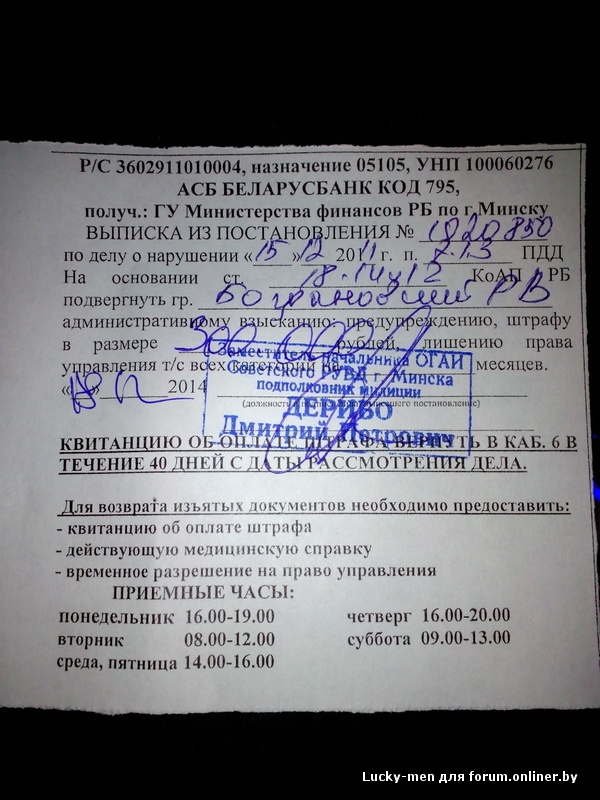 Р/С 3602911010004, назначение 05105, УНП 100060276
АСБ БЕЛАРУСБАНК КОД 795,
получ.: ГУ Министерства финансов РБ по г.Минску
ВЫПИСКА ИЗ ПОСТАНОВЛЕНИЯ № 1920850
по делу о нарушении «15»12 2011 г. п. 7.1.3 ПДД
На основании ст. 18.14 ч 12 КоАП РБ
подвергнуть гр. РВ
административному взысканию: предупреждению, штрафу
в размере 300 000 рублей, лишению права
управления т/с всех категорий на месяцев.
2014
Заместитель начальника ОГАИ
Советского РУВД г. Минска
подполковник милиции
ДЕРИВО
Дмитрий Петрович
КВИТАНЦИЮ ОБ ОПЛАТЕ ШТРАФА ВЕРНУТЬ В КАБ. 6 В
ТЕЧЕНИЕ 40 ДНЕЙ С ДАТЫ РАССМОТРЕНИЯ ДЕЛА.
Для возврата изъятых документов необходимо предоставить:
- квитанцию об оплате штрафа
- действующую медицинскую справку
- временное разрешение на право управления
ПРИЕМНЫЕ ЧАСЫ:
понедельник 16.00-19.00 четверг 16.00-20.00
вторник 08.00-12.00 суббота 09.00-13.00
среда, пятница 14.00-16.00
Lucky-men для forum.onliner.by